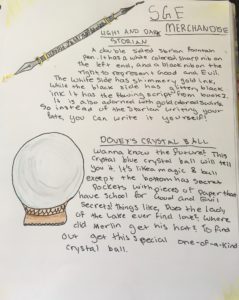 SGE
MERCHANDISE
LIGHT AND DARK
STORIAN
A double sided storian fountain
pen. It has a white colored sharp nib on
the left end, and a black nib on the
right to represent Good and Evil.
The white side has shimmery gold ink,
while the black side has glittery black
ink. It has the flowing script from book 2.
It is also adorned with gold colored swords.
So instead of the Storian writing your
fate, you can write it yourself!
DOVEY'S CRYSTAL BALL
Wanna know the future? This
crystal blue crystal ball will tell
you it. It's like a magic 8 ball
except the bottom has secret
Pockets with pieces of Paper that
have School for Good and Evil
Secrets! Things like, Does the lady
of the Lake ever find love? Where
did Merlin get his hat? To find
out get this special one-of-a-kind
crystal ball.